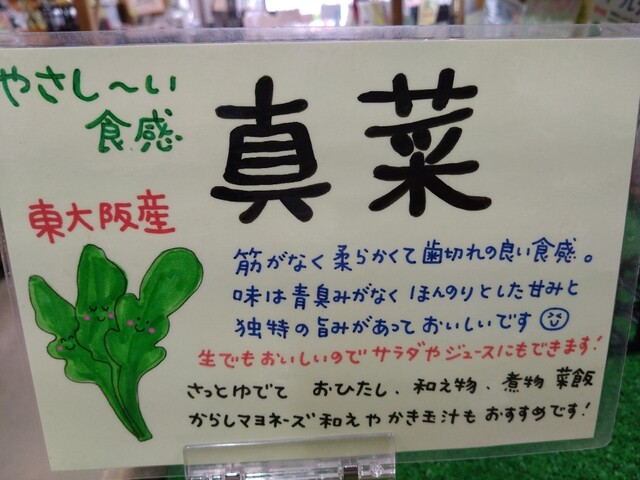 やさし～い
食感
真菜
東大阪産
筋がなく柔らかくて歯切れの良い食感。
味は青臭みがなくほんのりとした甘みと
独特の旨みがあっておいしいです
生でもおいしいのでサラダやジュースにもできます!
さっとゆでて おひたし、和え物、煮物 菜飯
からしマヨネーズ和えやかき玉汁もおすすめです!